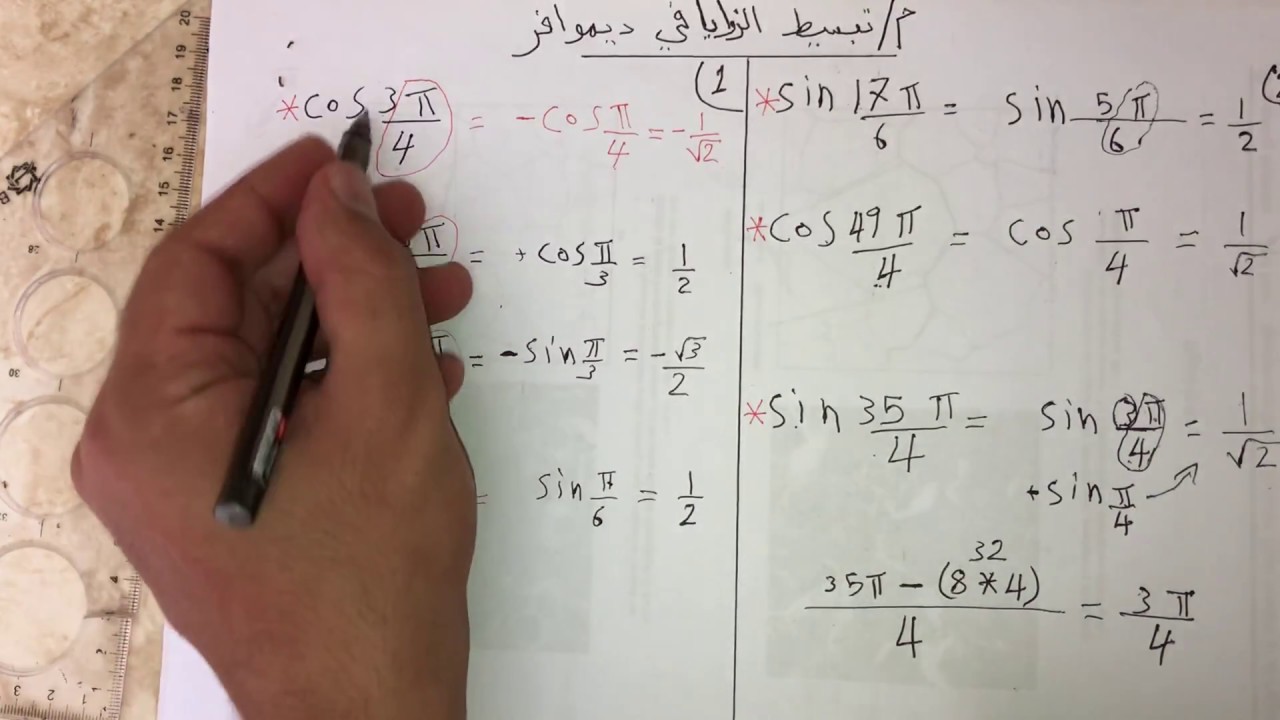 م/ تبسيط الزوايا في ديموافر
1)
* cos 3π/4 = - cos π/4 = - 1/√2
π = + cos π/3 = 1/2
= - sin π/3 = - √3/2
= sin π/6 = 1/2
* sin 17π/6 = sin 5π/6 = 1/2
* cos 49π/4 = cos π/4 = 1/√2
* sin 35π/4 = sin 3π/4 = 1/√2
+ sin π/4
32
35π - (8*4)/4 = 3π/4
20
19
18
17
16
15
14
28
30
4
3 2 1
2
1
B